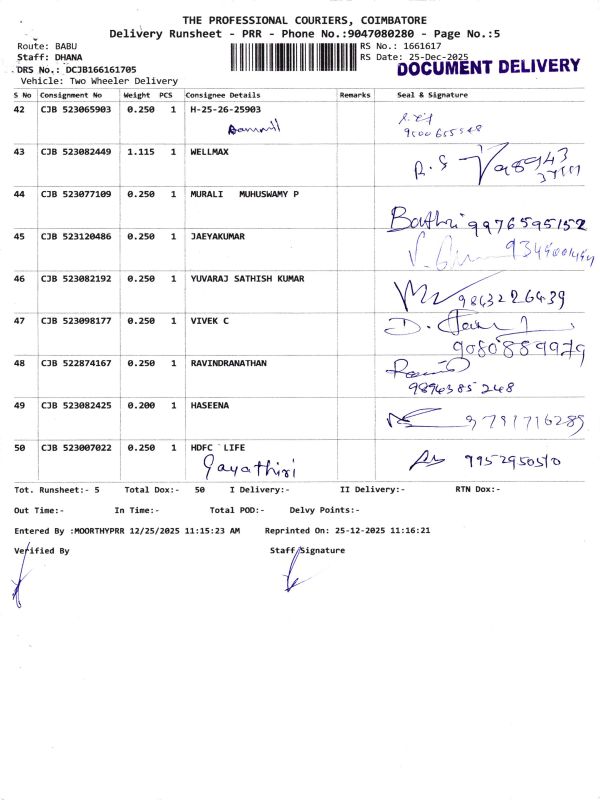 THE PROFESSIONAL COURIERS, COIMBATORE
Delivery Runsheet - PRR - Phone No.:9047080280 - Page No.:5
Route: BABU RS No.: 1661617
Staff: DHANA RS Date: 25-Dec-2025
DRS No.: DCJB166161705 DOCUMENT DELIVERY
Vehicle: Two Wheeler Delivery
S No Consignment No Weight PCS Consignee Details Remarks Seal & Signature
42 CJB 523065903 0.250 1 H-25-26-25903
43 CJB 523082449 1.115 1 WELLMAX
R.S
44 CJB 523077109 0.250 1 MURALI MUHUSWAMY P
Bathri 9976595152
45 CJB 523120486 0.250 1 JAEYAKUMAR
46 CJB 523082192 0.250 1 YUVARAJ SATHISH KUMAR
9843226439
47 CJB 523098177 0.250 1 VIVEK C
9080889979
48 CJB 522874167 0.250 1 RAVINDRANATHAN
9894385248
49 CJB 523082425 0.200 1 HASEENA
9791716289
50 CJB 523007022 0.250 1 HDFC LIFE
Gayathiri 9952950510
Tot. Runsheet:- 5 Total Dox:- 50 I Delivery:- II Delivery:- RTN Dox:-
Out Time:- In Time:- Total POD:- Delvy Points:-
Entered By :MOORTHYPRR 12/25/2025 11:15:23 AM Reprinted On: 25-12-2025 11:16:21
Verified By Staff Signature